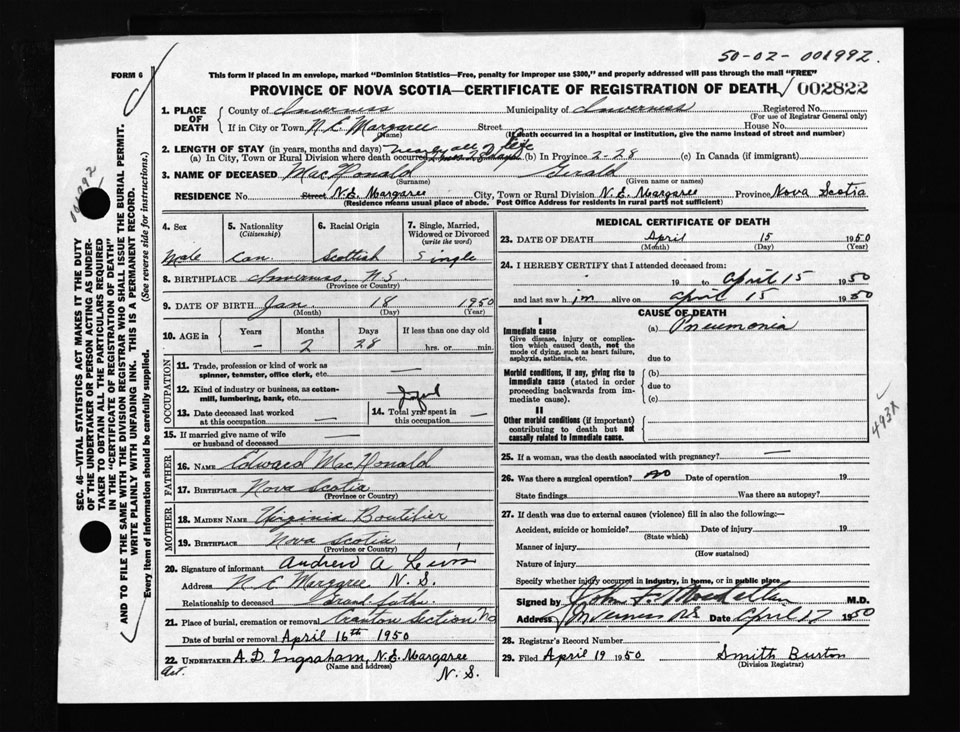 50-02-001992
FORM 6
This form if placed in an envelope, marked "Dominion Statistics—Free, penalty for improper use $300," and properly addressed will pass through the mail "FREE"
PROVINCE OF NOVA SCOTIA—CERTIFICATE OF REGISTRATION OF DEATH 002822
1. PLACE OF DEATH
County of Inverness Municipality of Inverness Registered No.
(For use of Registrar General only)
If in City or Town N. E. Margaree Street House No.
(Name) (If death occurred in a hospital or institution, give the name instead of street and number)
2. LENGTH OF STAY (in years, months and days) nearly all of life
(a) In City, Town or Rural Division where death occurred (b) In Province 2-28 (c) In Canada (if immigrant)
3. NAME OF DECEASED MacDonald Gerald
(Surname) (Given name or names)
RESIDENCE No. Street N.E. Margaree City, Town or Rural Division N.E. Margaree Province Nova Scotia
(Residence means usual place of abode. Post Office Address for residents in rural parts not sufficient)
4. Sex
Male
5. Nationality
(Citizenship)
Can.
6. Racial Origin
Scottish
7. Single, Married, Widowed or Divorced
(write the word)
Single
8. BIRTHPLACE Inverness, N.S.
(Province or Country)
9. DATE OF BIRTH Jan. 18 1950
(Month) (Day) (Year)
10. AGE in Years Months Days If less than one day old
– 2 28 hrs. or min.
OCCUPATION
11. Trade, profession or kind of work as
spinner, teamster, office clerk, etc. —
12. Kind of industry or business, as cotton-
mill, lumbering, bank, etc.
13. Date deceased last worked
at this occupation —
14. Total yrs. spent in
this occupation —
15. If married give name of wife
or husband of deceased —
FATHER
16. NAME Edward MacDonald
17. BIRTHPLACE Nova Scotia
(Province or Country)
MOTHER
18. MAIDEN NAME Virginia Boutilier
19. BIRTHPLACE Nova Scotia
(Province or Country)
20. Signature of informant Andrew A
Address N. E. Margaree N. S.
Relationship to deceased Grandfather
21. Place of burial, cremation or removal Section
Date of burial or removal April 16th 1950
22. UNDERTAKER A.D. Ingraham, N.E. Margaree
(Name and address)
N. S.
MEDICAL CERTIFICATE OF DEATH
23. DATE OF DEATH April 15 1950
(Month) (Day) (Year)
24. I HEREBY CERTIFY that I attended deceased from:
19 to April 15 1950
and last saw him alive on April 15 1950
CAUSE OF DEATH
I
Immediate cause
Give disease, injury or complica-
tion which caused death, not the
mode of dying, such as heart failure,
asphyxia, asthenia, etc.
(a) Pneumonia
due to
Morbid conditions, if any, giving rise to
immediate cause (stated in order
proceeding backwards from immediate
cause).
(b)
due to
(c)
II
Other morbid conditions (if important)
contributing to death but not
causally related to immediate cause.
493X
25. If a woman, was the death associated with pregnancy? —
26. Was there a surgical operation? no Date of operation 19
State findings Was there an autopsy?
27. If death was due to external causes (violence) fill in also the following:—
Accident, suicide or homicide? Date of injury 19
(State which)
Manner of injury
(How sustained)
Nature of injury
Specify whether injury occurred in industry, in home, or in public place
Signed by John M.D.
Address Date April 17 1950
28. Registrar's Record Number
29. Filed April 19 1950 Smith Burton
(Division Registrar)
SEC. 46—VITAL STATISTICS ACT MAKES IT THE DUTY
OF THE UNDERTAKER OR PERSON ACTING AS UNDER-
TAKER TO OBTAIN ALL THE PARTICULARS REQUIRED
IN THE "CERTIFICATE OF REGISTRATION OF DEATH"
AND TO FILE THE SAME WITH THE DIVISION REGISTRAR WHO SHALL ISSUE THE BURIAL PERMIT.
WRITE PLAINLY WITH UNFADING INK. THIS IS A PERMANENT RECORD.
Every item of information should be carefully supplied. (See reverse side for instructions.)